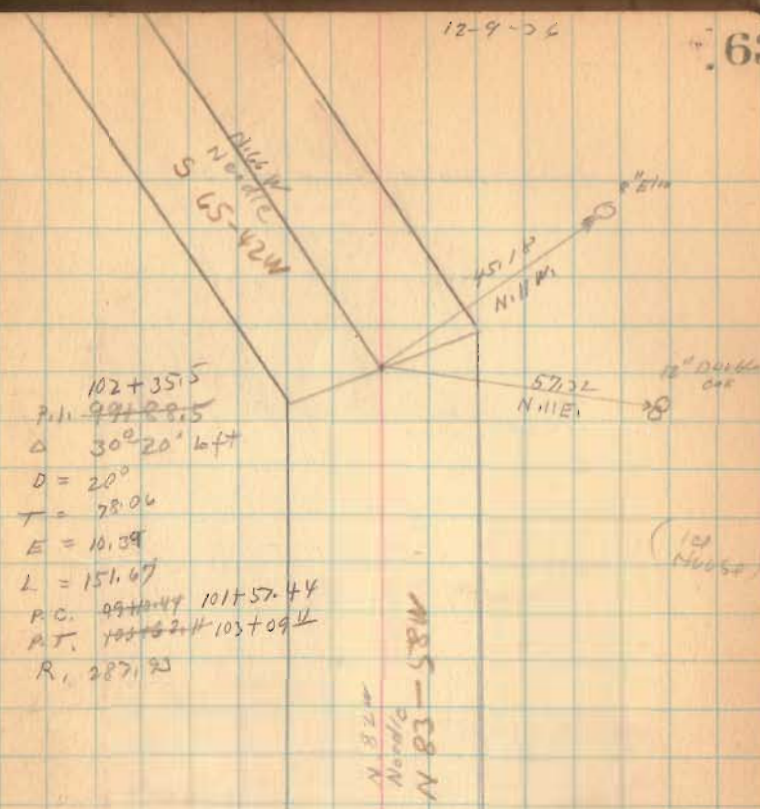 12-9-36
63
N.66 W
Needle
S 65-42W
8" Elm
45.18
N.11 W.
57.32
N.11E.
12" Double
oak
102+35.5
P.I. 99+88.5
Δ 30°-20' Left
D = 20°
T = 78.06
E = 10.39
L = 151.67
P.C. 99+10.44 101+57.44
P.T. 103+09.11
R. 287.93
House)
N 82W
Needle
N 83-58W